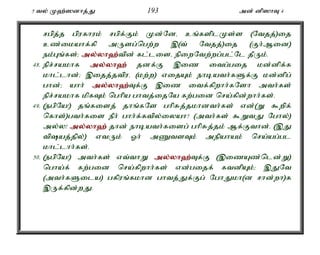 5 வல் முஹ்ஸனாத்து 193 அன் னிஸாவு 4
சபித்த பிரகாரம் சபிக்கும் முன்னே, உங்களிடமுள்ள (வேதத்)தை
உண்மையாக்கி அருளப்பெற்ற இ(வ் வேதத்)தை (குர்ஆனை)
நம்புங்கள்; அல்லாஹ்வின் கட்டளை, நிறைவேற்றப்பட்டே தீரும்.
48. நிச்சயமாக அல்லாஹ் தனக்கு இணை வைப்பதை மன்னிக்க
மாட்டான்; இதைத்தவிர, (மற்ற) எதையும் நாடியவர்களுக்கு மன்னிப்
பான்; யார் அல்லாஹ்வுக்கு இணை வைக்கிறார்களோ அவர்கள்
நிச்சயமாக மிகவும் பெரிய பாவத்தையே கற்பனை செய்கின்றார்கள்.
49. (நபியே) தங்களைத் தாங்களே பரிசுத்தமானவர்கள் என்(று கூறிக்
கொள்)பவர்களை நீர் பார்க்கவில்லையா? (அவர்கள் கூறுவது போல்)
அல்ல! அல்லாஹ் தான் நாடியவர்களைப் பரிசுத்தம் ஆக்குவான். (இது
விஷயத்தில்) எவரும் ஓர் அணுவளவும் அநியாயம் செய்யப்பட
மாட்டார்கள்.
50. (நபியே) அவர்கள் எவ்வாறு அல்லாஹ்வுக்கு (இணையுண்டென்று)
பொய்க் கற்பனை செய்கிறார்கள் என்பதைக் கவனியும்; இதுவே
(அவர்களுடைய) பகிரங்கமான பாவத்துக்குப் போதுமா(ன சான்றா)க
இருக்கின்றது.